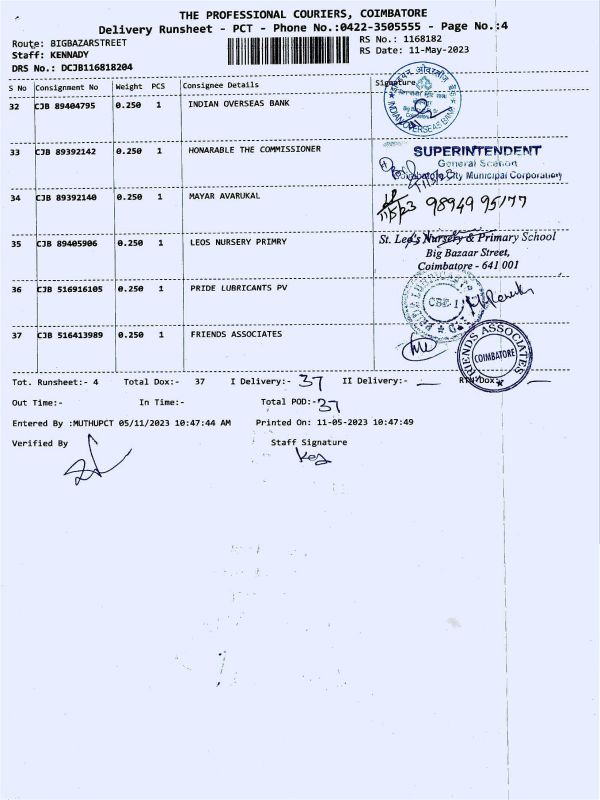 THE PROFESSIONAL COURIERS, COIMBATORE
Delivery Runsheet - PCT - Phone No.:0422-3505555 - Page No.:4
Route: BIGBAZARSTREET
RS No.: 1168182
Staff: KENNADY
RS Date: 11-May-2023
DRS No.: DCJB116818204
S No Consignment No Weight PCS Consignee Details Signature
32 CJB 89404795 0.250 1 INDIAN OVERSEAS BANK
INDIAN OVERSEAS BANK
33 CJB 89392142 0.250 1 HONARABLE THE COMMISSIONER
SUPERINTENDENT
General Section
Coimbatore City Municipal Corporation
34 CJB 89392140 0.250 1 MAYAR AVARUKAL
11/5/23 98949 95177
35 CJB 89405906 0.250 1 LEOS NURSERY PRIMRY
St. Leo's Nursery & Primary School
Big Bazaar Street,
Coimbatore - 641 001
36 CJB 516916105 0.250 1 PRIDE LUBRICANTS PV
CBE-1
37 CJB 516413989 0.250 1 FRIENDS ASSOCIATES
FRIENDS ASSOCIATES
COIMBATORE
Tot. Runsheet:- 4 Total Dox:- 37 I Delivery:- 37 II Delivery:- — RTN Dox:- —
Out Time:- In Time:- Total POD:- 37
Entered By :MUTHUPCT 05/11/2023 10:47:44 AM Printed On: 11-05-2023 10:47:49
Verified By Staff Signature